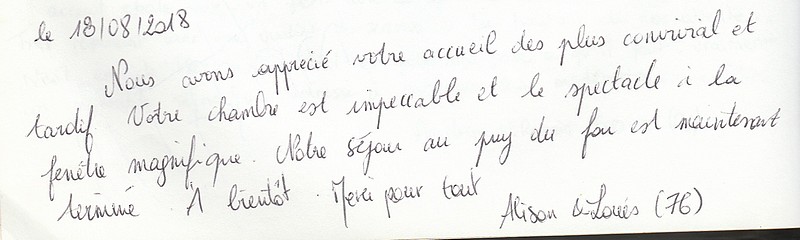 le 18/08/2018
Nous avons apprécié votre accueil des plus convivial et
tardif Votre chambre est impeccable et le spectacle à la
fenêtre magnifique. Notre séjour au puy du fou est maintenant
terminé. À bientôt. Merci pour tout
Alison & Louis (76)